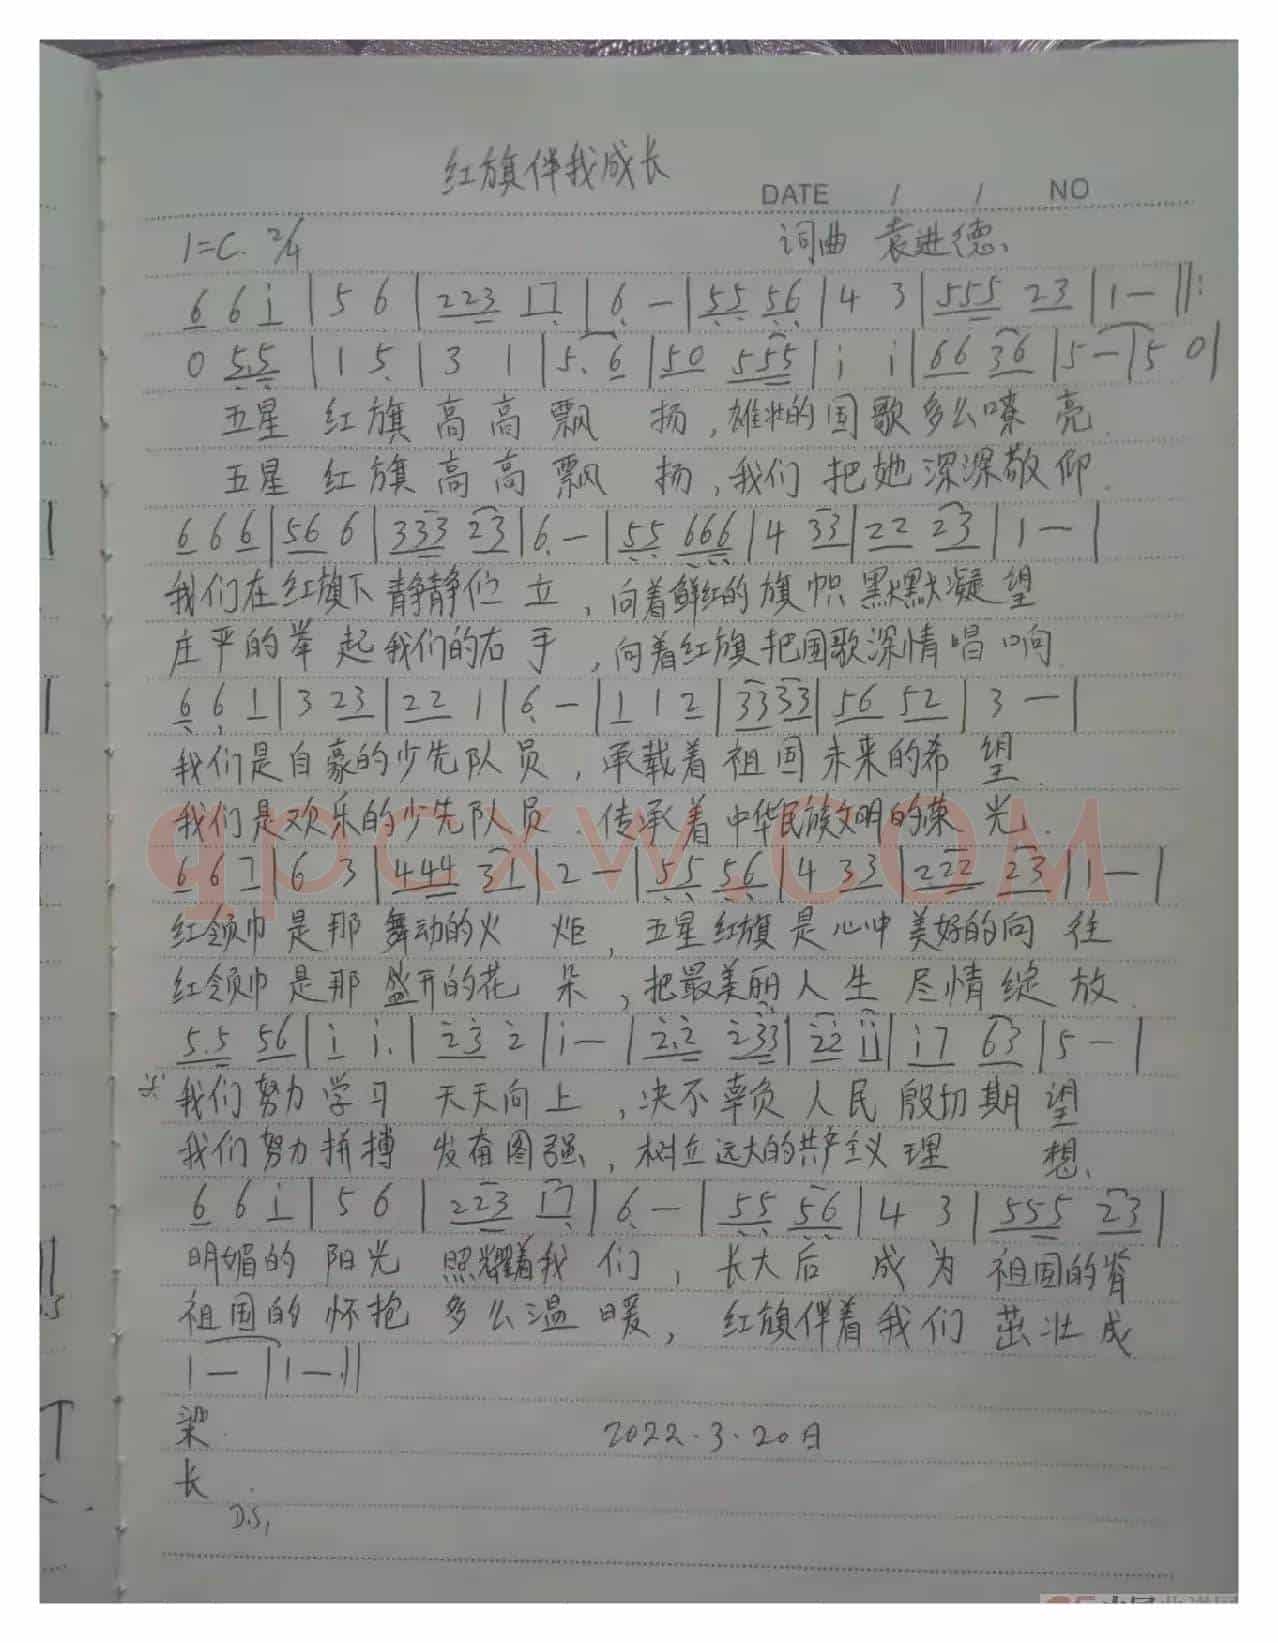 红旗伴我成长
DATE / / NO
1=C. 2/4 词曲 袁进德、
6 6 i | 5 6 | 223 17 | 6 — | 55 56 | 4 3 | 555 23 | 1 — ‖:
0 5.5 | 1 5 | 3 1 | 5. 6 | 50 555 | i i | 66 36 | 5 — | 5 0 |
五星 红旗 高高飘 扬,雄壮的国歌多么嘹亮.
五星 红旗 高高飘 扬,我们把她深深敬仰.
6 6 6 | 56 6 | 333 23 | 6. — | 55 666 | 4 33 | 22 23 | 1 — |
我们在红旗下静静伫立,向着鲜红的旗帜默默凝望
庄严的举起我们的右手,向着红旗把国歌深情唱响.
6 6 1 | 3 23 | 22 1 | 6 — | 1 1 2 | 33 33 | 56 52 | 3 — |
我们是自豪的少先队员,承载着祖国未来的希望.
我们是欢乐的少先队员.传承着中华民族文明的荣光.
qpcxw.COM
6 6 7 | 6 3 | 444 31 | 2 — | 55 56 | 4 33 | 222 23 | 1 — |
红领巾是那舞动的火炬,五星红旗是心中美好的向往
红领巾是那盛开的花朵,把最美丽人生尽情绽放.
5.5 56 | i i. | 23 2 | i — | 2.2 233 | 22 ii | i7 63 | 5 — |
我们努力学习 天天向上,决不辜负人民殷切期望
我们努力拼搏 发奋图强,树立远大的共产主义理想、
6 6 i | 5 6 | 223 17 | 6. — | 55 56 | 4 3 | 555 23 |
明媚的阳光 照耀着我们,长大后 成为 祖国的脊
祖国的怀抱 多么温暖,红旗伴着我们茁壮成
1 — | 1 — ‖
梁. 2022.3.20日
长.
D.S,